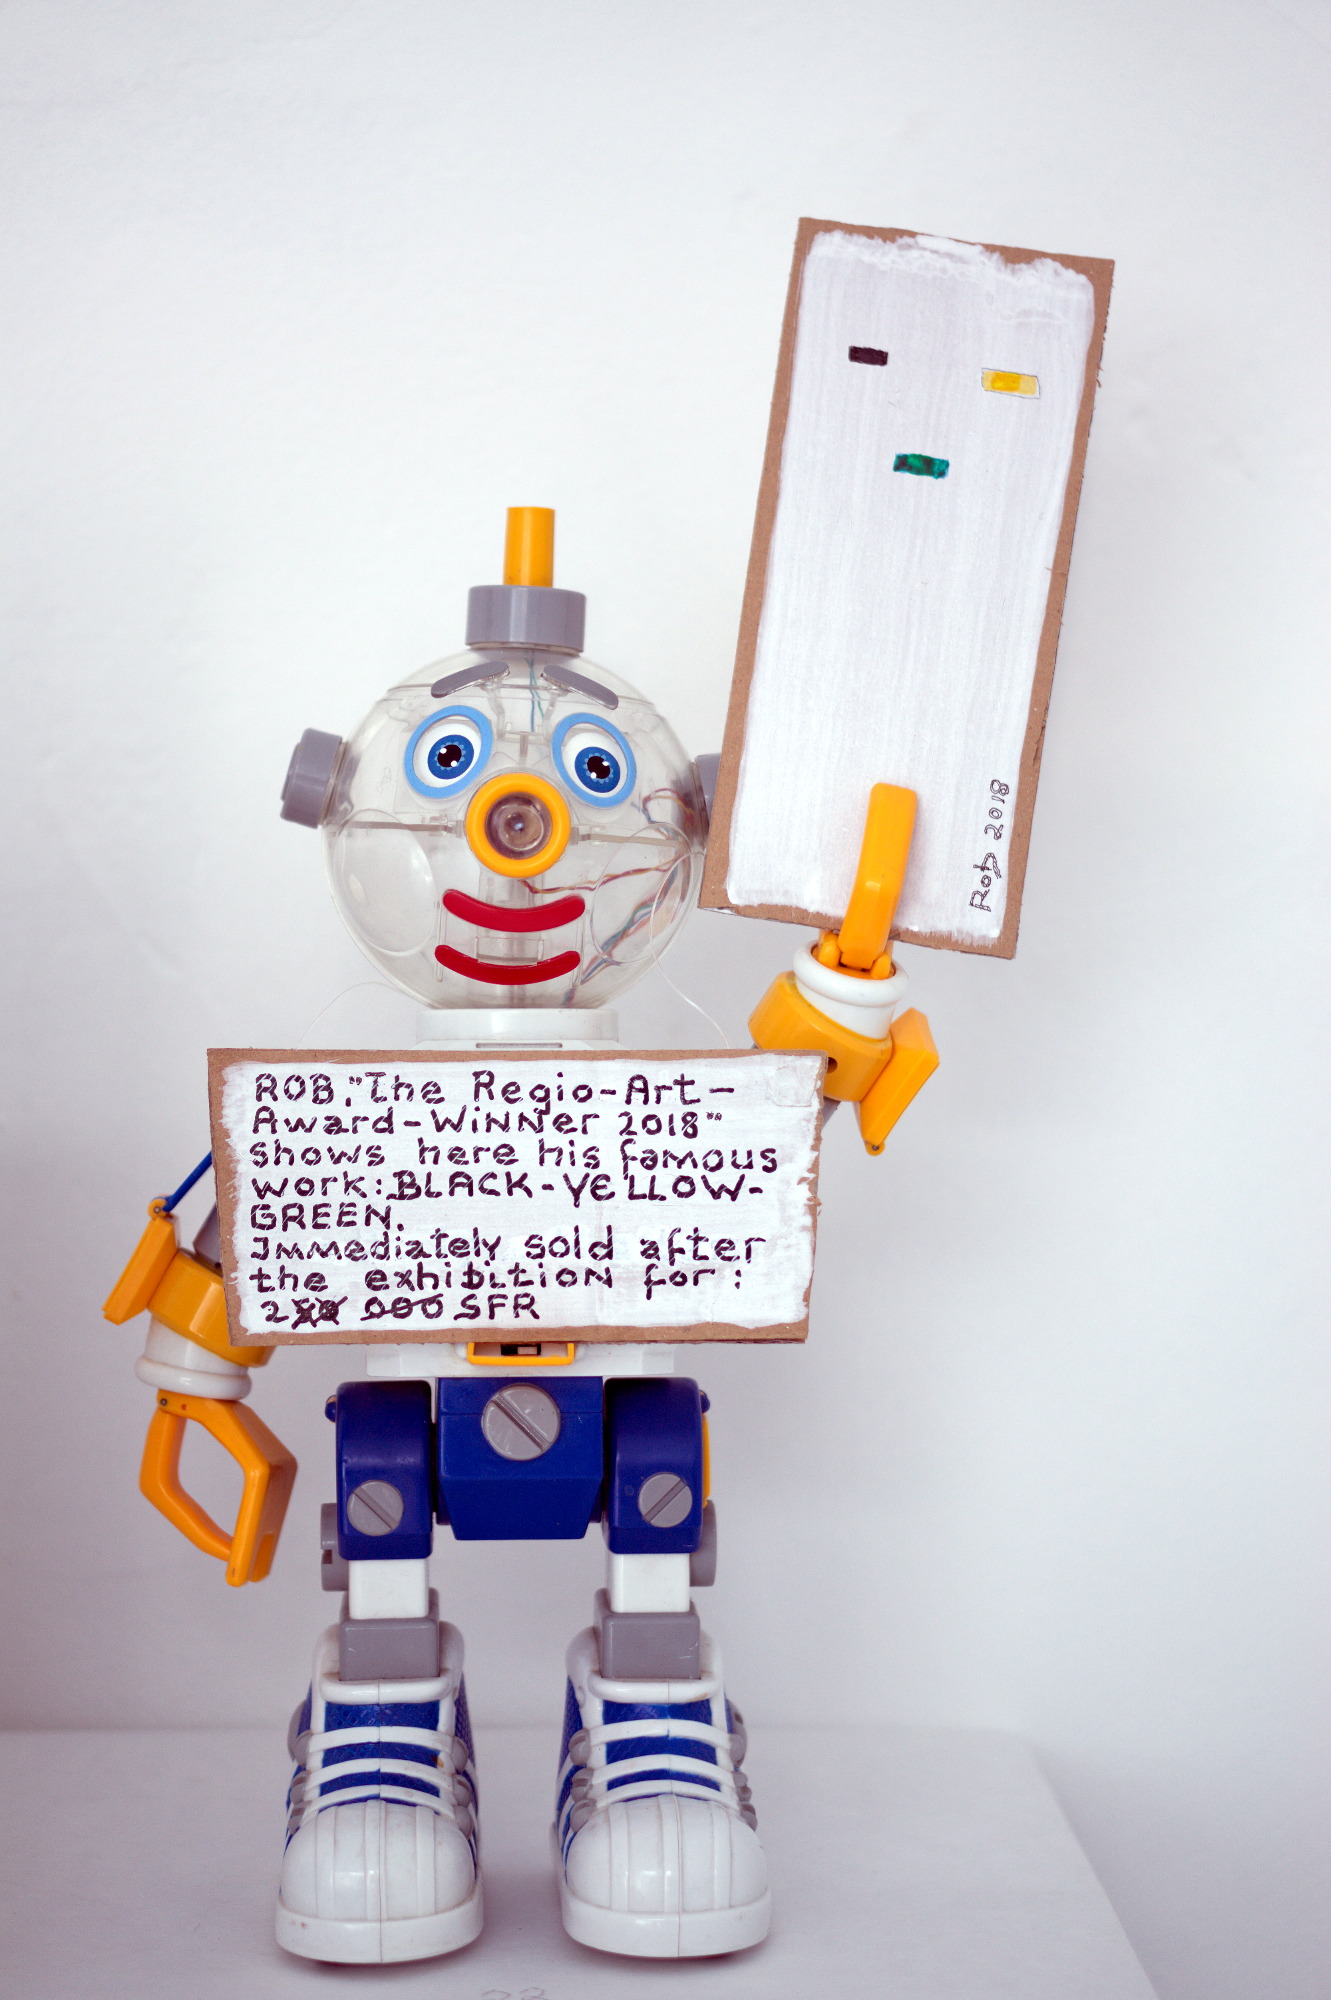 Rob 2018
ROB,"The Regio-Art-
Award-WiNNer 2018"
shows here his famous
work:BLACK-YELLOW-
GREEN.
Immediately sold after
the exhibition for:
SFR